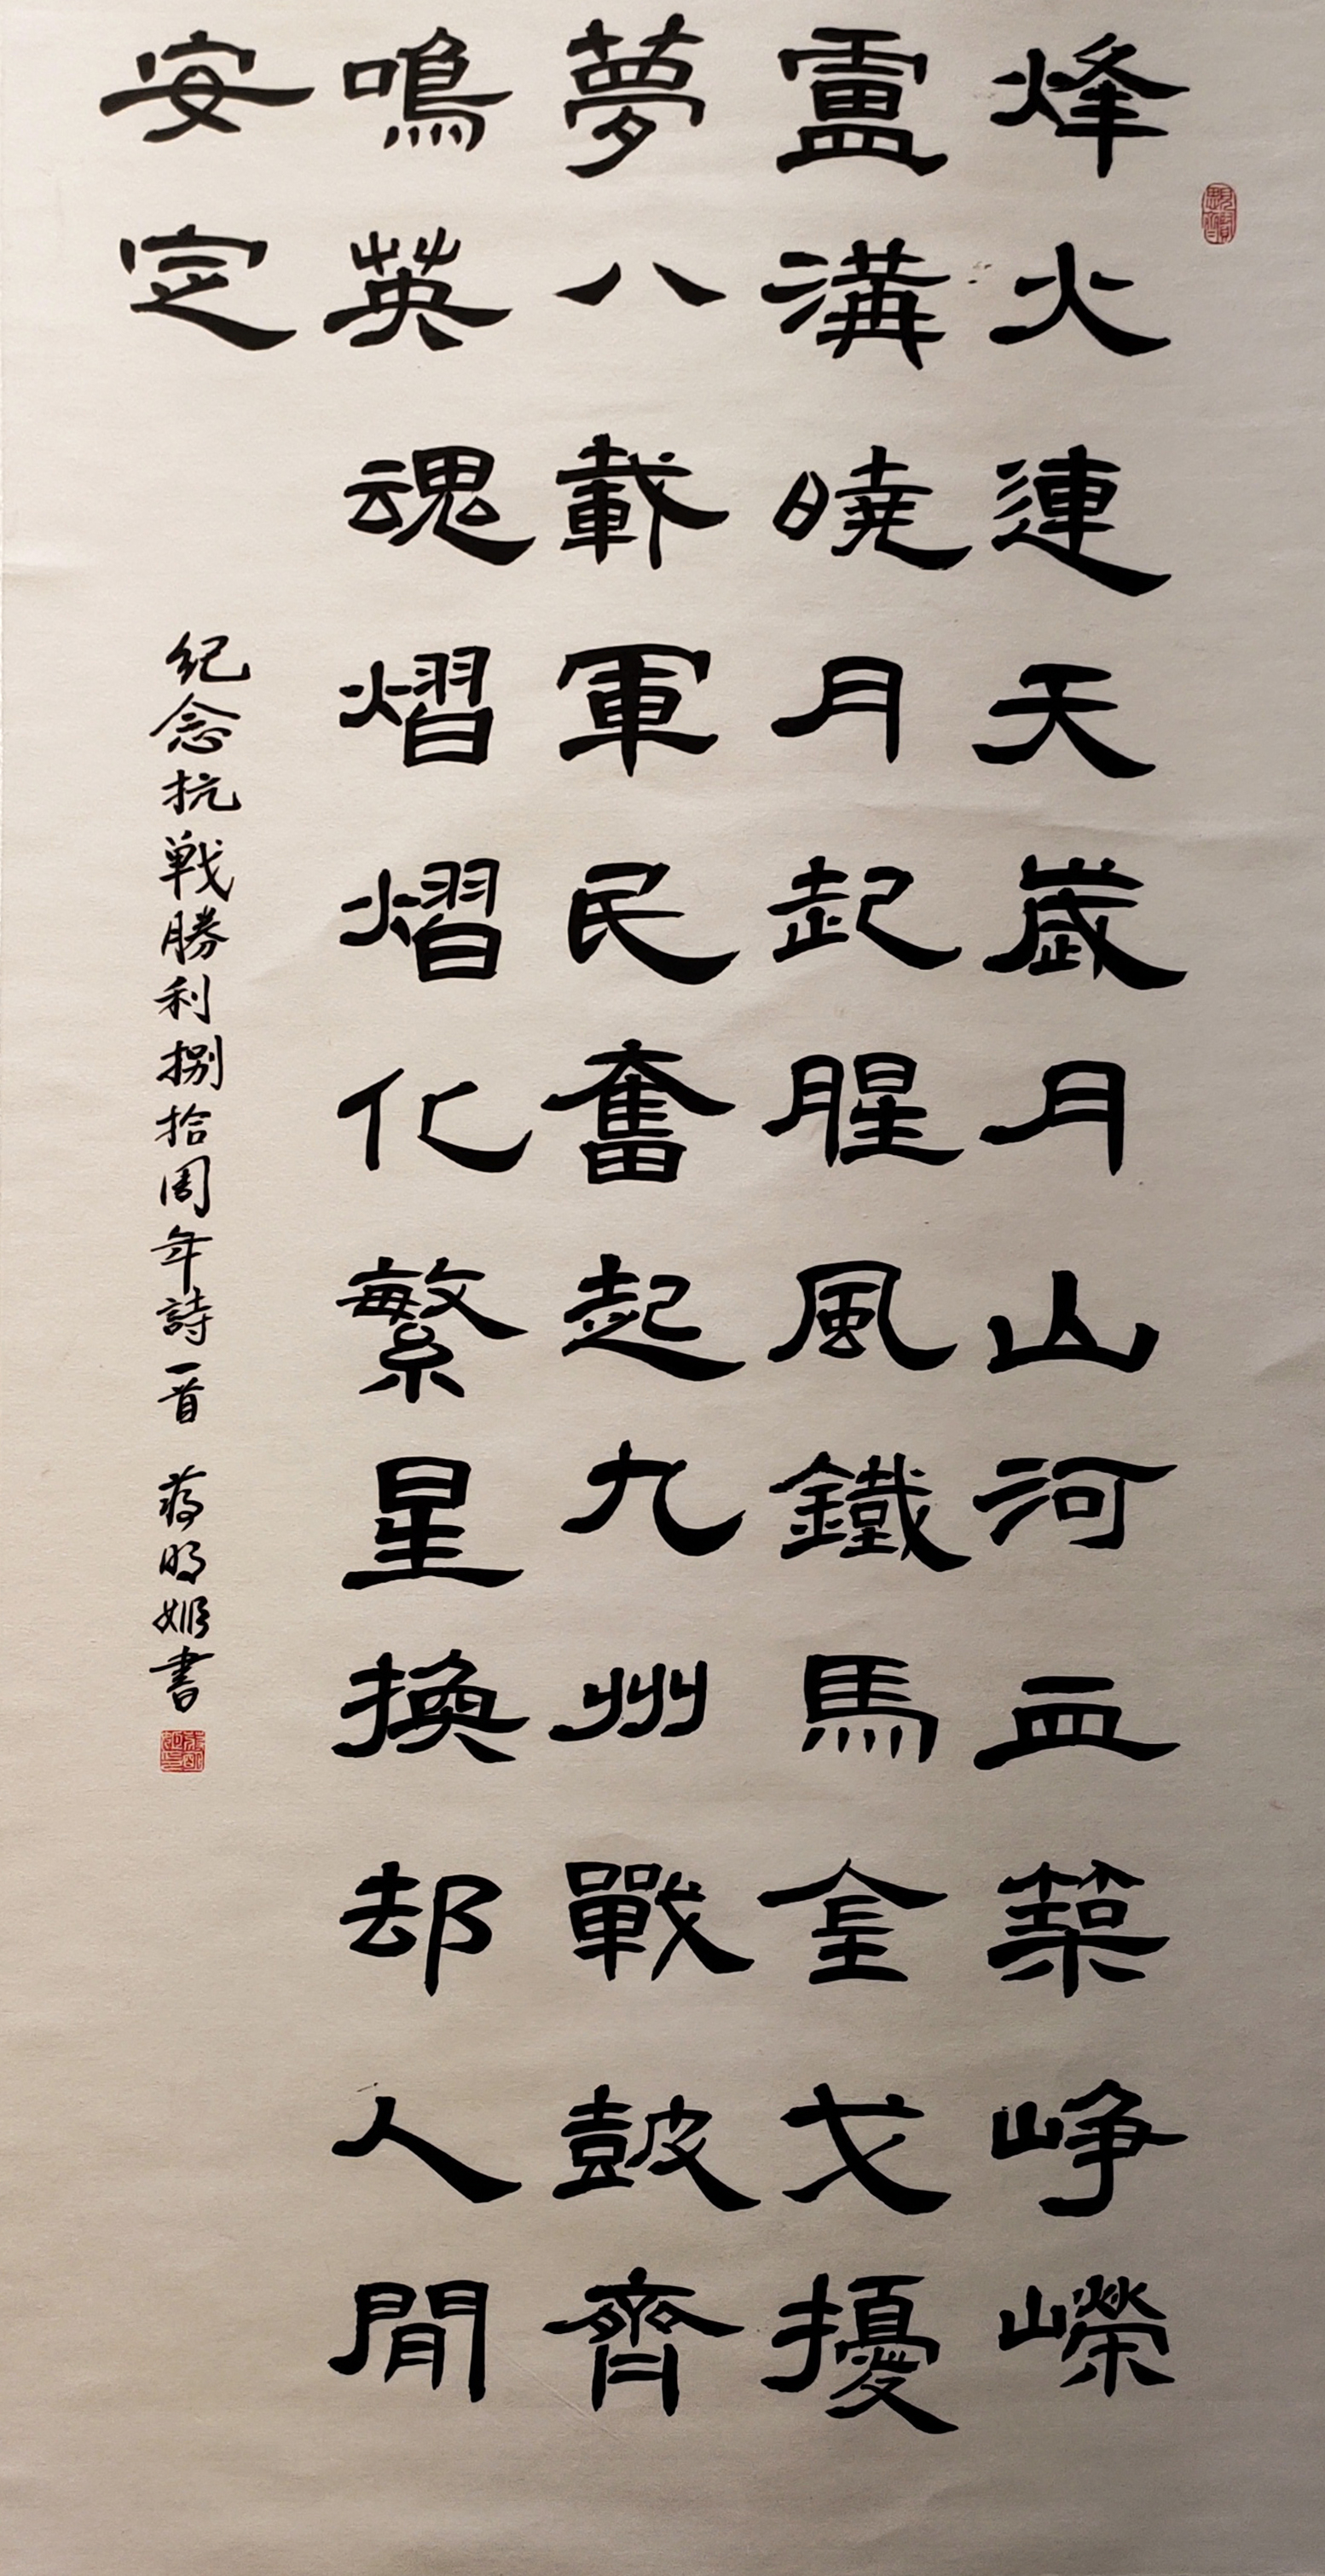 烽火連天歲月山河血築崢嶸
盧溝曉月起腥風鐵馬金戈擾
夢八載軍民奮起九州戰鼓齊
鳴英魂熠熠化繁星換却人間
安定
紀念抗戰勝利捌拾周年詩一首 蔣明姬書